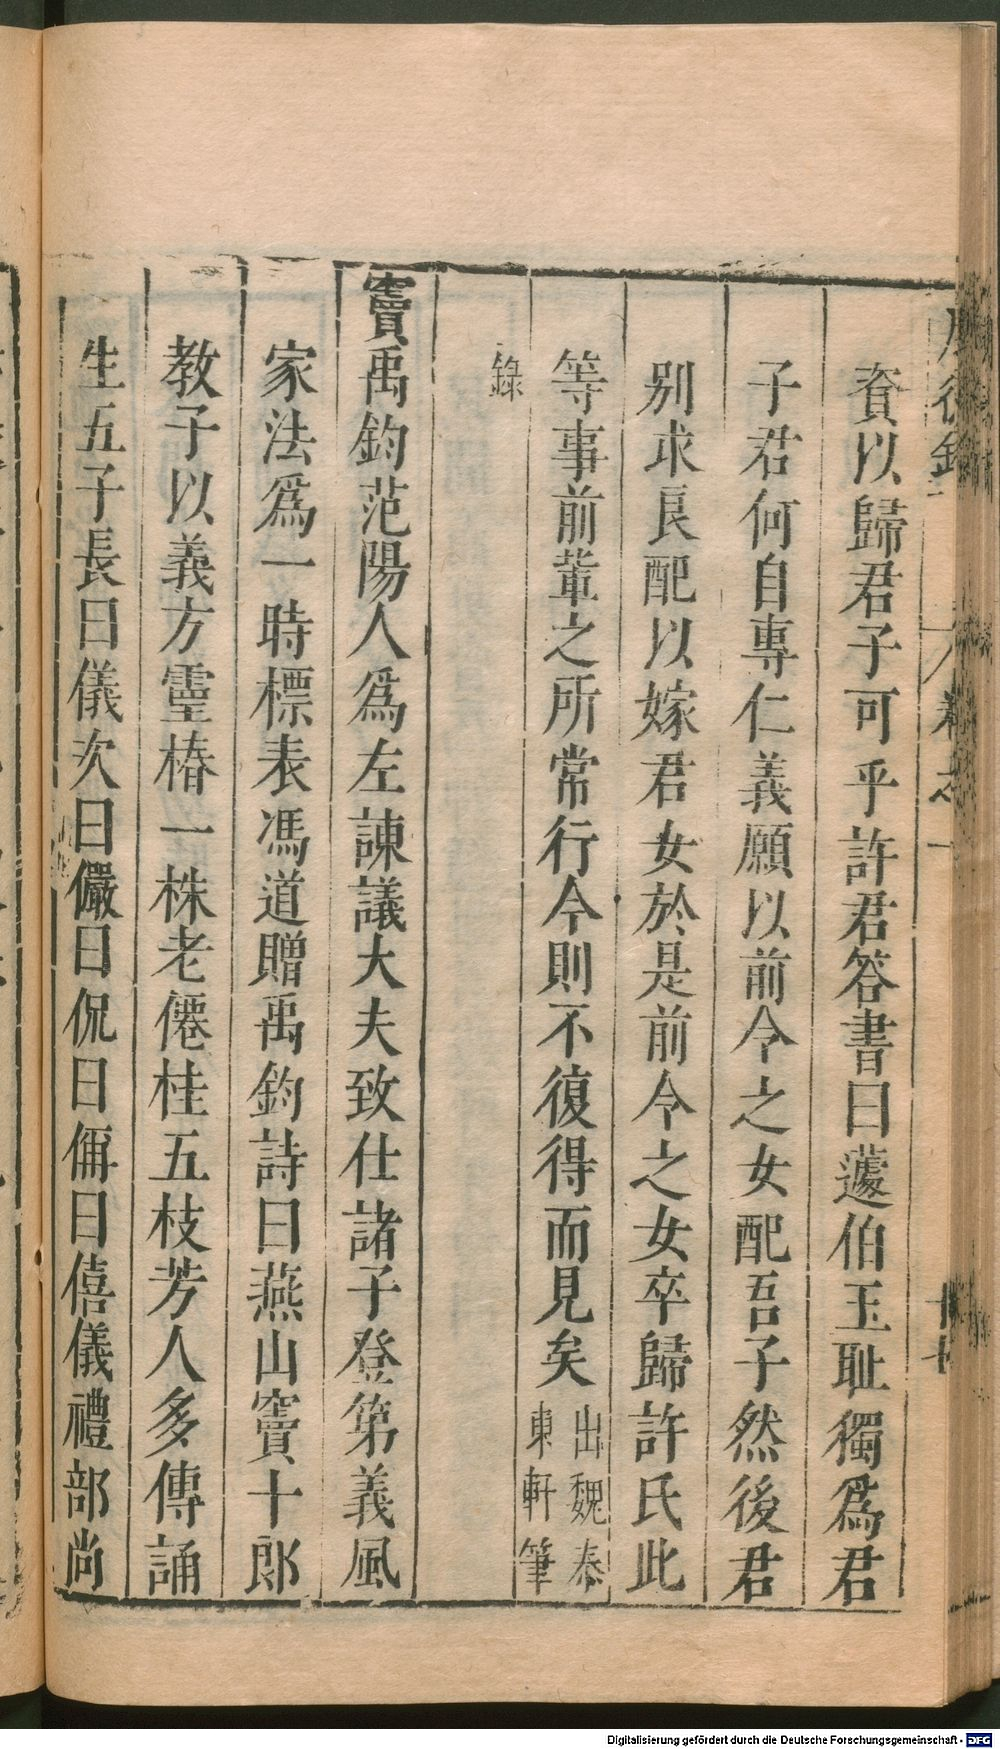 資以歸君子可乎許君答書曰蘧伯玉耻獨爲君
子君何自專仁義願以前令之女配吾子然後君
别求良配以嫁君女於是前令之女卒歸許氏此
等事前輩之所常行今則不復得而見矣出魏泰東軒筆
錄
竇禹鈞范陽人爲左諫議大夫致仕諸子登第義風
家法爲一時標表馮道贈禹鈞詩曰燕山竇十郎
教子以義方靈椿一株老僊桂五枝芳人多傳誦
生五子長曰儀次曰儼曰侃曰偁曰僖儀禮部尚
Digitalisierung gefördert durch die Deutsche Forschungsgemeinschaft - DFG